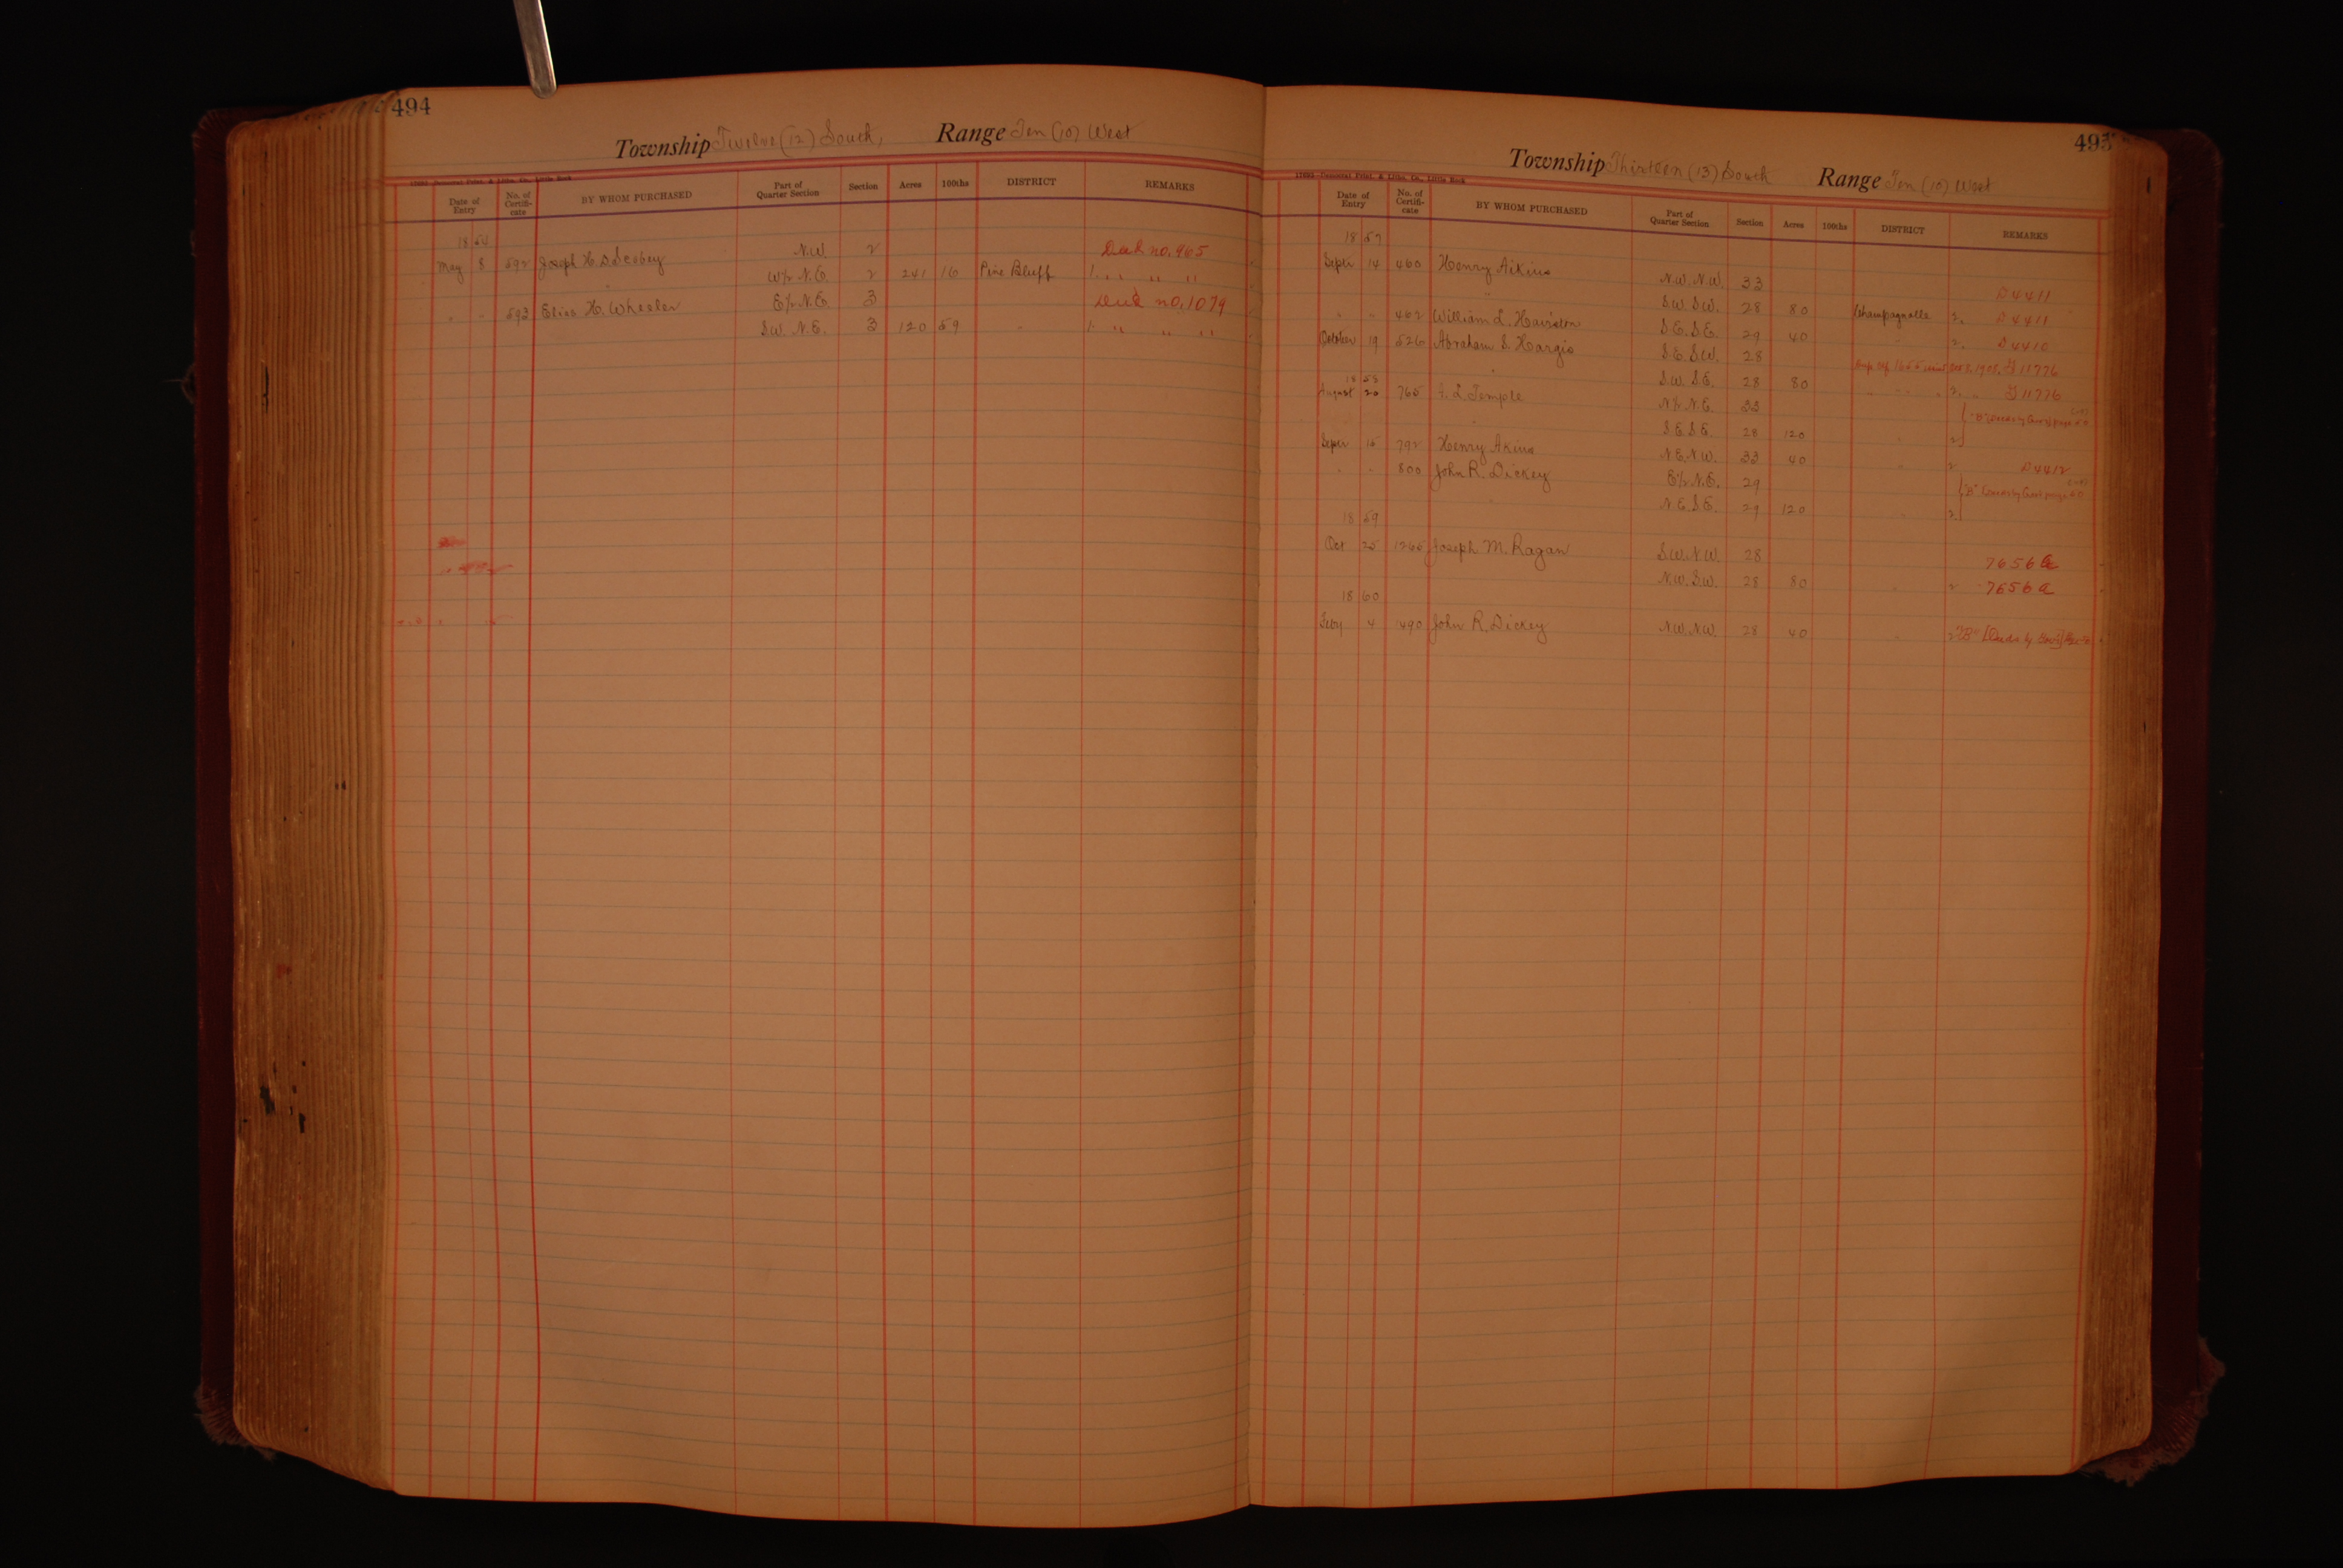 494
Township Twelve (12) South, Range Ten (10) West
Date of Entry No. of Certifi-cate BY WHOM PURCHASED Part of Quarter Section Section Acres 100ths DISTRICT REMARKS
1854
May 8 592 Joseph H. N.W. 2 no. 965
W½ N.E. 2 241 16 Pine Bluff 1. " " "
" " 593 Elias H. Wheeler E½ N.E. 3 no. 1079
S.W. N.E. 3 120 59 " 1. " " "
495
Township Thirteen (13) South Range Ten (10) West
Date of Entry No. of Certifi-cate BY WHOM PURCHASED Part of Quarter Section Section Acres 100ths DISTRICT REMARKS
1857
Septr 14 460 Henry Aikins N.W. N.W. 33 D4411
" S.W. S.W. 28 80 Champagnolle 2. D4411
" " 462 William L. Hairston S.E. S.E. 29 40 " 2. D4410
October 19 526 Abraham S. Hargis S.E. S.W. 28 1908, 11776
" S.W. S.E. 28 80 " 2. " 11776
1858
August 20 765 L. Temple N½ N.E. 33
" S.E. S.E. 28 120 " 2
Septr 15 792 Henry Akins N.E. N.W. 33 40 " 2 D4412
" " 800 John R. Dickey E½ N.E. 29
" N.E. S.E. 29 120 " 2
1859
Oct 25 1265 Joseph M. Ragan S.W. N.W. 28 7656a
N.W. S.W. 28 80 " 2 7656a
1860
Feby 4 1490 John R. Dickey N.W. N.W. 28 40 " 2 "B"